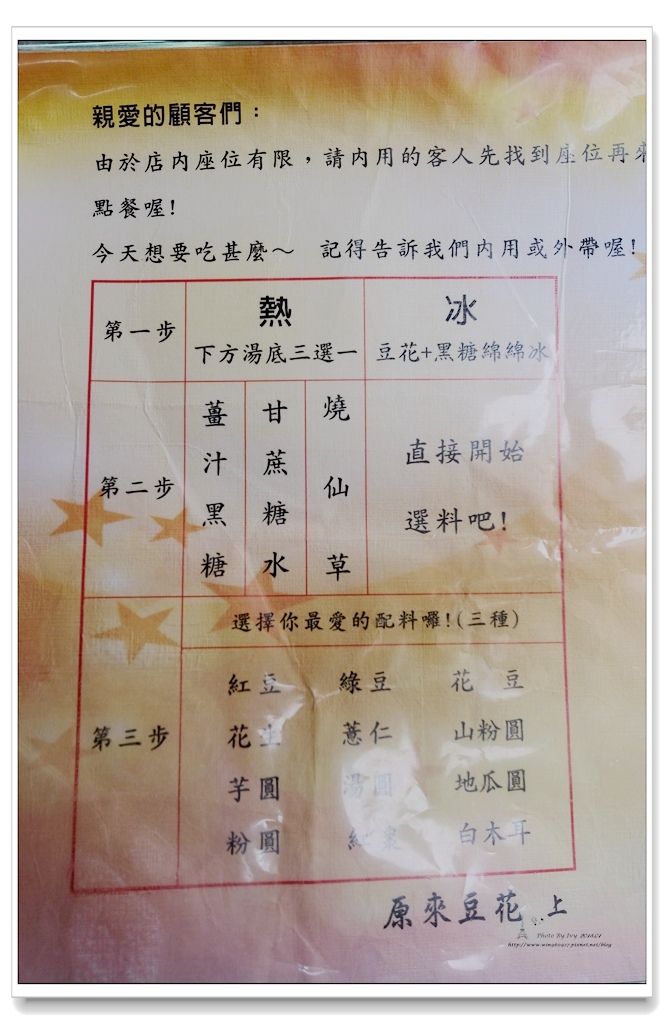 親愛的顧客們：
由於店內座位有限，請內用的客人先找到座位再來
點餐喔!
今天想要吃甚麼～ 記得告訴我們內用或外帶喔!
第一步 熱 冰
下方湯底三選一 豆花+黑糖綿綿冰
第二步
薑汁黑糖
甘蔗糖水
燒仙草
直接開始
選料吧!
第三步
選擇你最愛的配料囉!(三種)
紅豆 綠豆 花豆
花生 薏仁 山粉圓
芋圓 湯圓 地瓜圓
粉圓 紅棗 白木耳
原來豆花 上
Photo By Ivy
http://www.wingko917.pixnet.net/blog